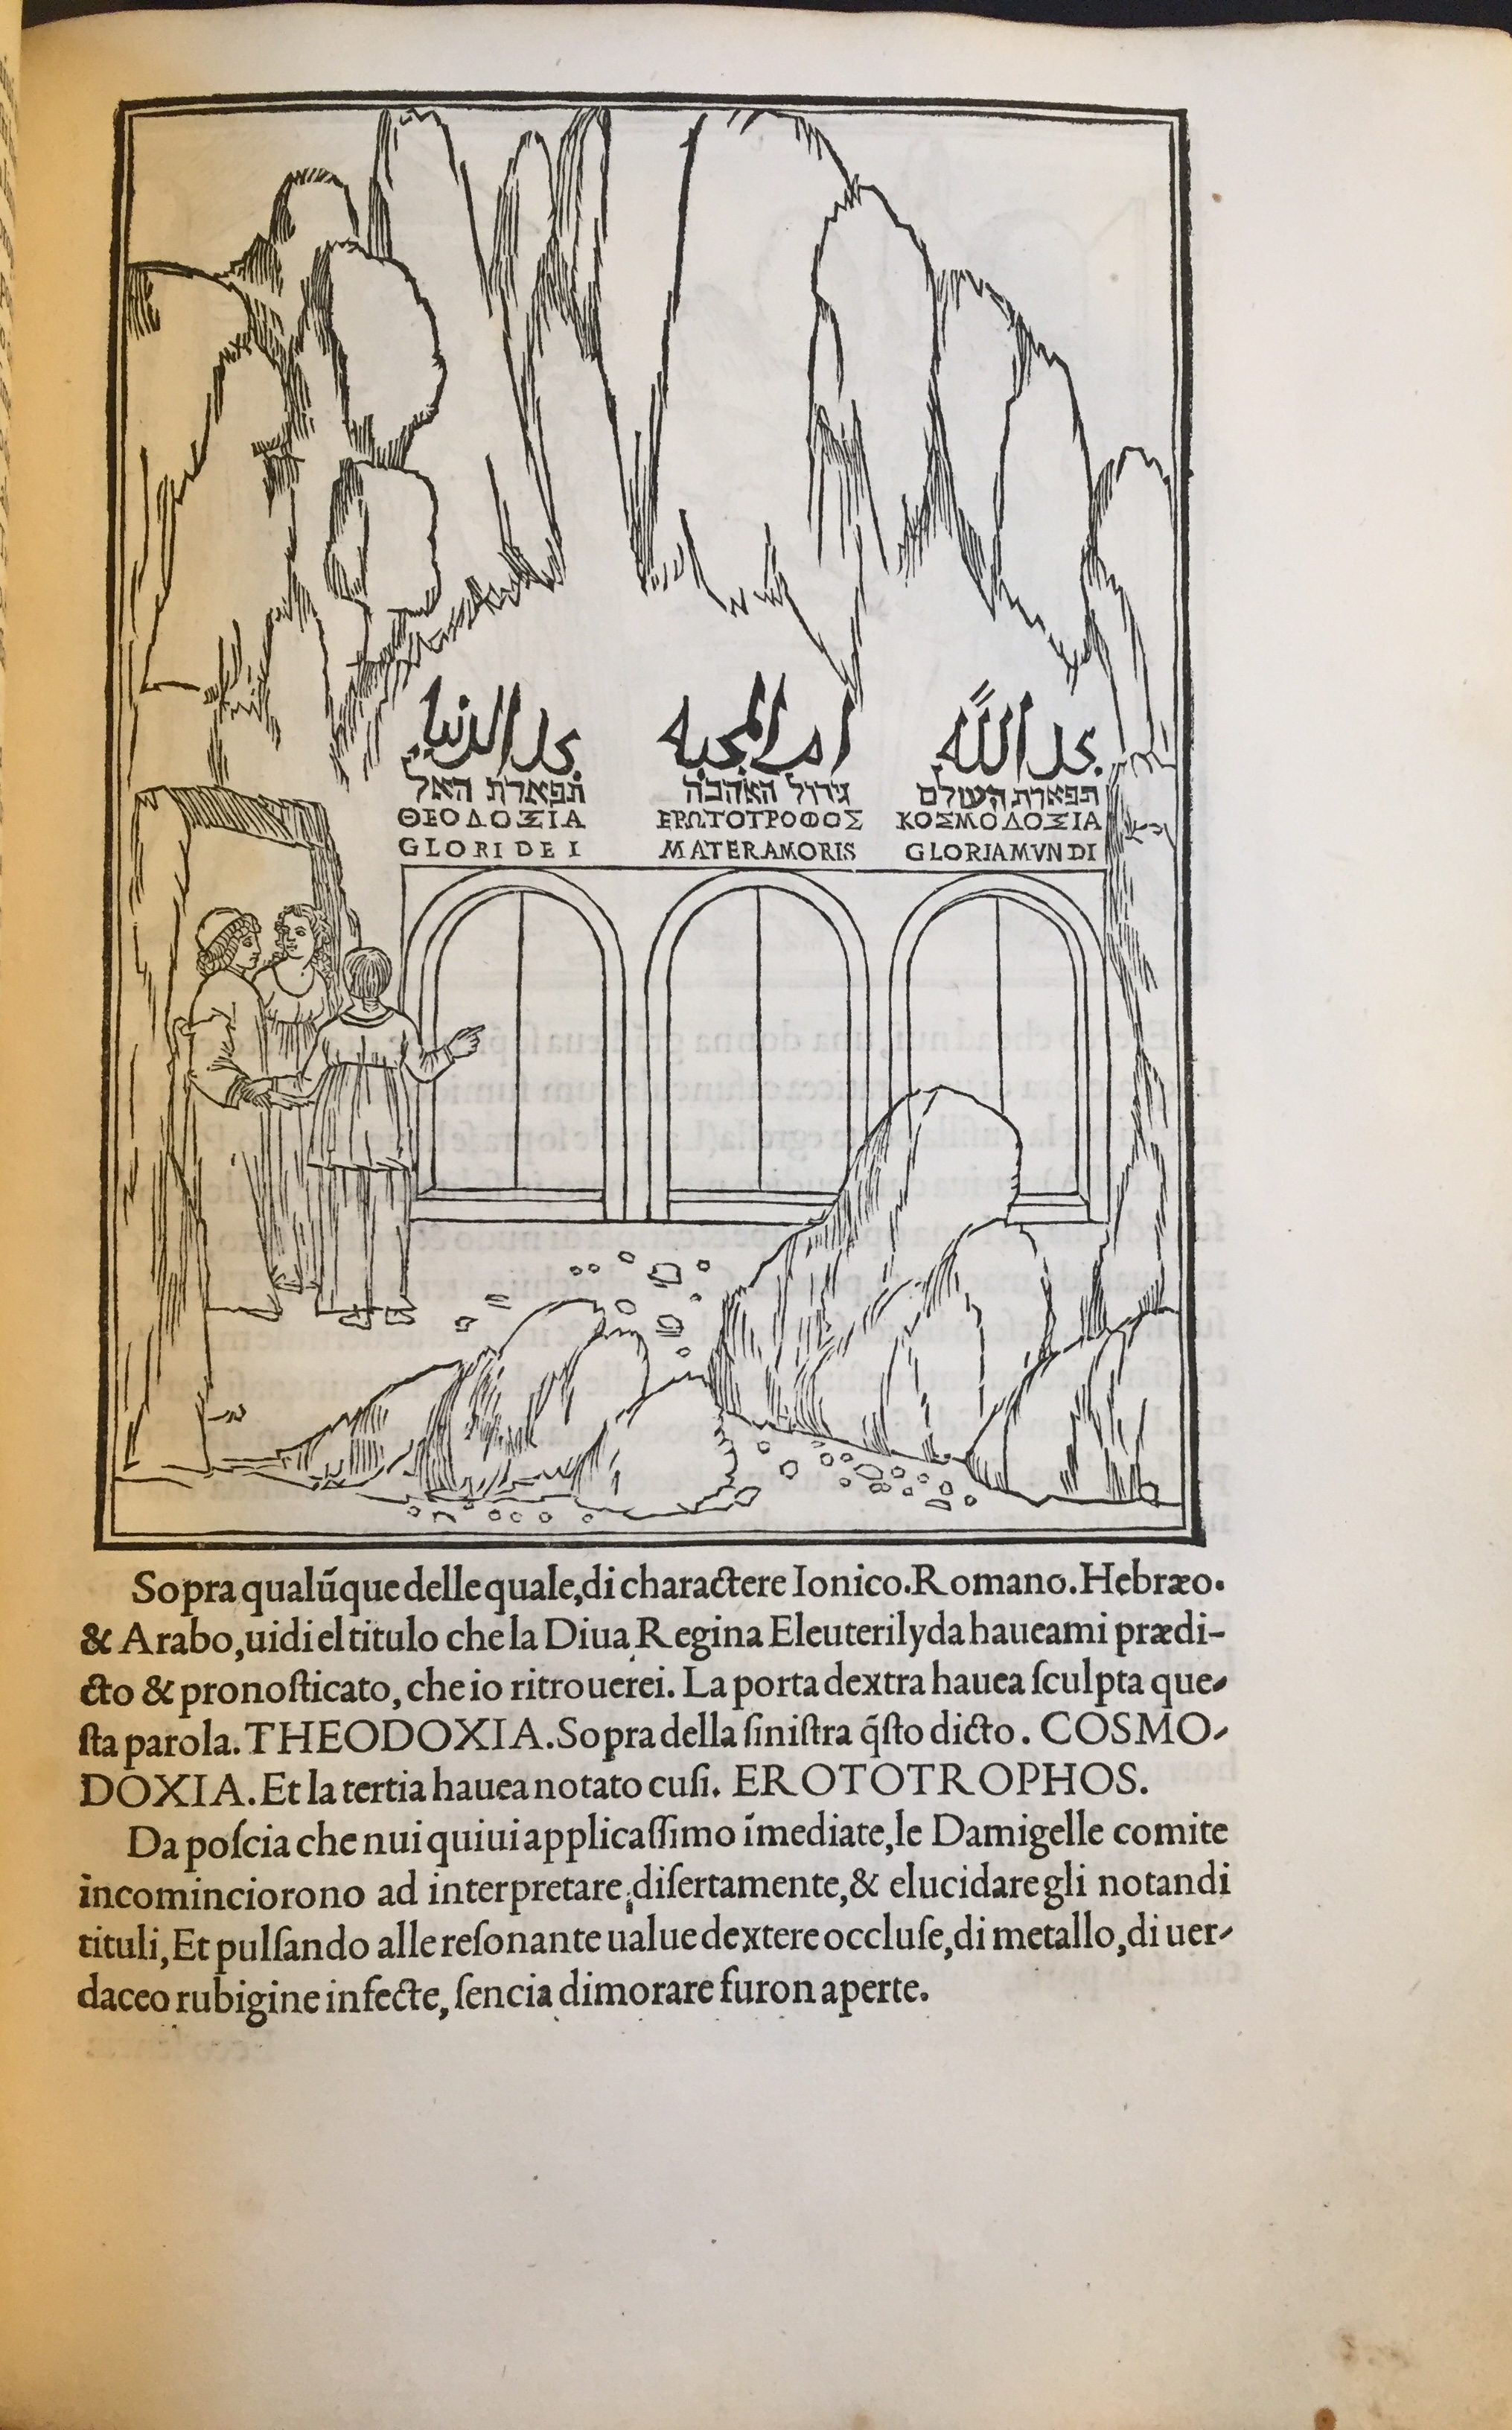 مجد الدنيا ام المحبه مجد الله
תפארת האל גידול האהבה תפארת העולם
ΘΕΟΔΟΞΙΑ ΕΡΩΤΟΤΡΟΦΟΣ ΚΟΣΜΟΔΟΞΙΑ
GLORI DEI MATER AMORIS GLORIA MVNDI
Sopra qualũque delle quale, di charactere Ionico. Romano. Hebræo.
& Arabo, uidi el titulo che la Diua Regina Eleuterilyda haueami prædi-
cto & pronoſticato, che io ritrouerei. La porta dextra hauea ſculpta que-
ſta parola. THEODOXIA. Sopra della ſiniſtra q̃ſto dicto. COSMO-
DOXIA. Et la tertia hauea notato cuſi. EROTOTROPHOS.
Da poſcia che nui quiui applicaſſimo ĩmediate, le Damigelle comite
incominciorono ad interpretare diſertamente, & elucidare gli notandi
tituli, Et pulſando alle reſonante ualue dextere occluſe, di metallo, di uer-
daceo rubigine infecte, ſencia dimorare furon aperte.